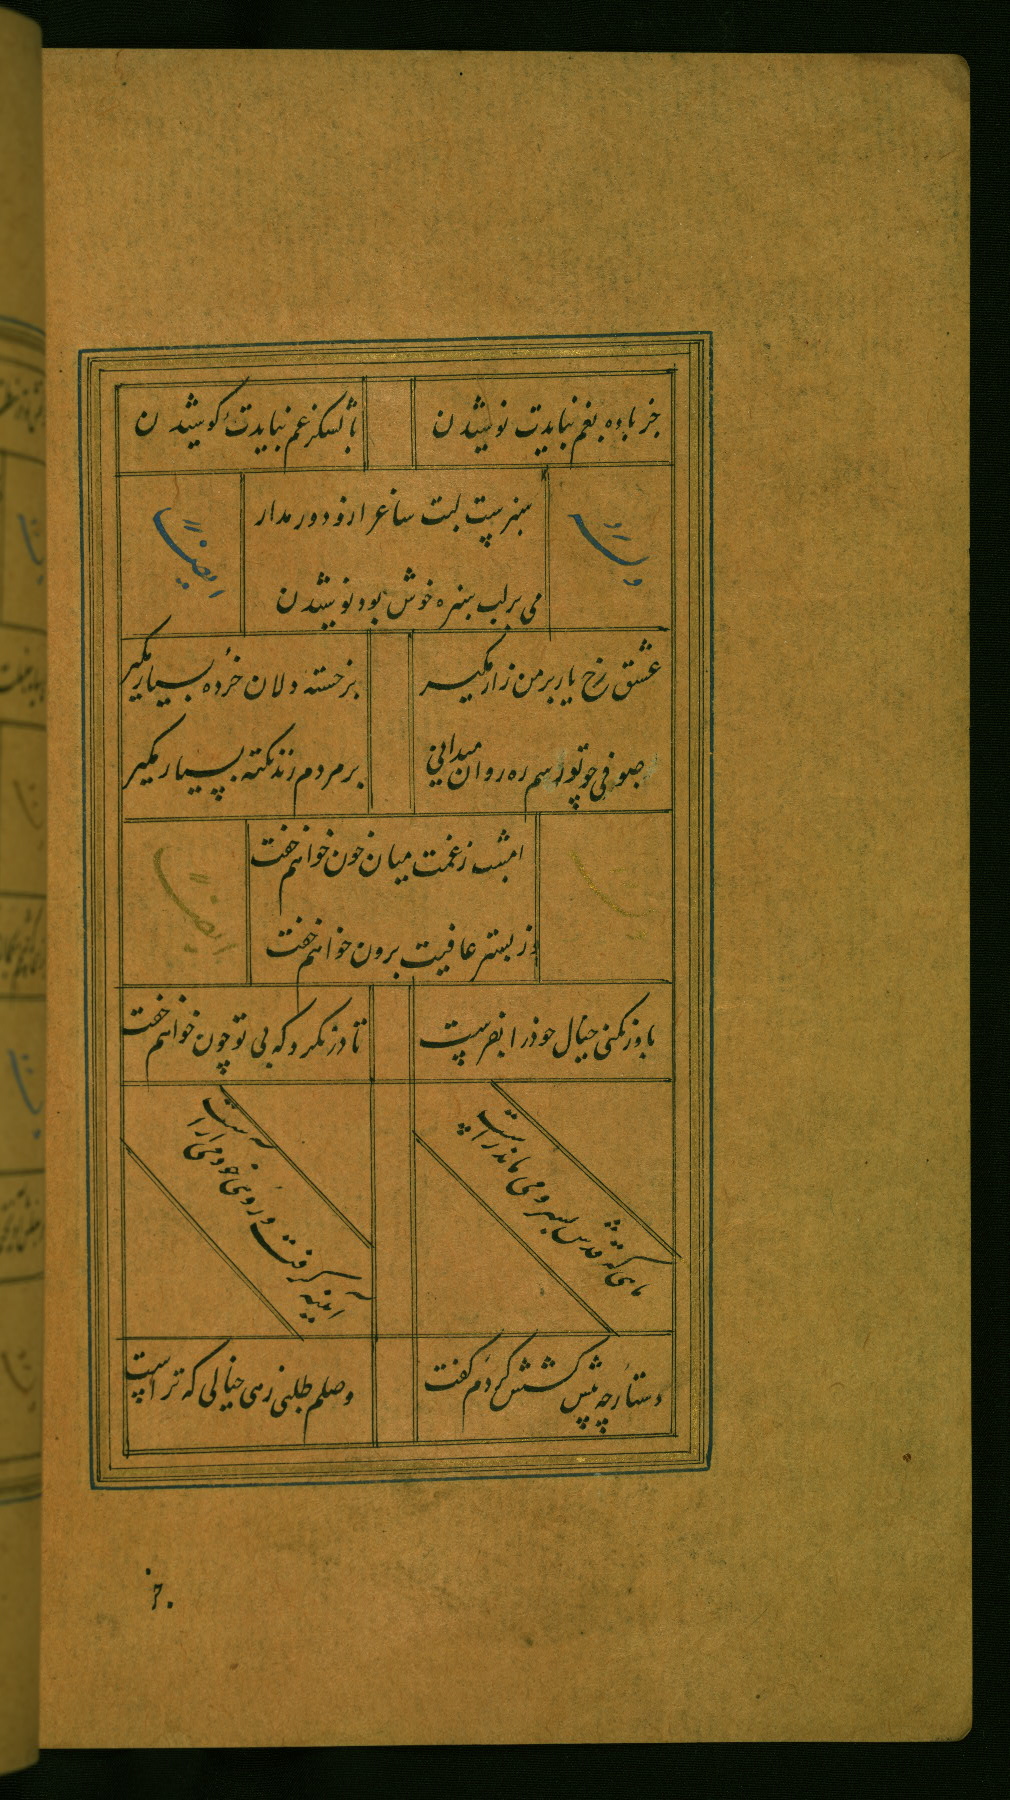 جز باده بغم نبایدت نوشیدن
با لشکر غم نبایدت کوشیدن
سبزست لبت ساغر ازو دور مدار
می برلب سبزه خوش بود نوشیدن
وله
ایضا
عشق رخ یار برمن زار مگیر
برخسته دلان خرده بسیار مگیر
صوفی چو تو رسم ره روان میدانی
برمردم رند نکته بسیار مگیر
امشب زغمت میان خون خواهم خفت
وز بستر عافیت برون خواهم خفت
وله
ایضا
باور نکنی خیال خود را بفرست
تا درنکرد که بی تو چون خواهم خفت
ماهی که قدش بسرو می ماند راست
آیینه گرفت و روی خود می آراست
دستارچه پیش کشش کردم گفت
وصلم طلبی زهی خیالی که تراست